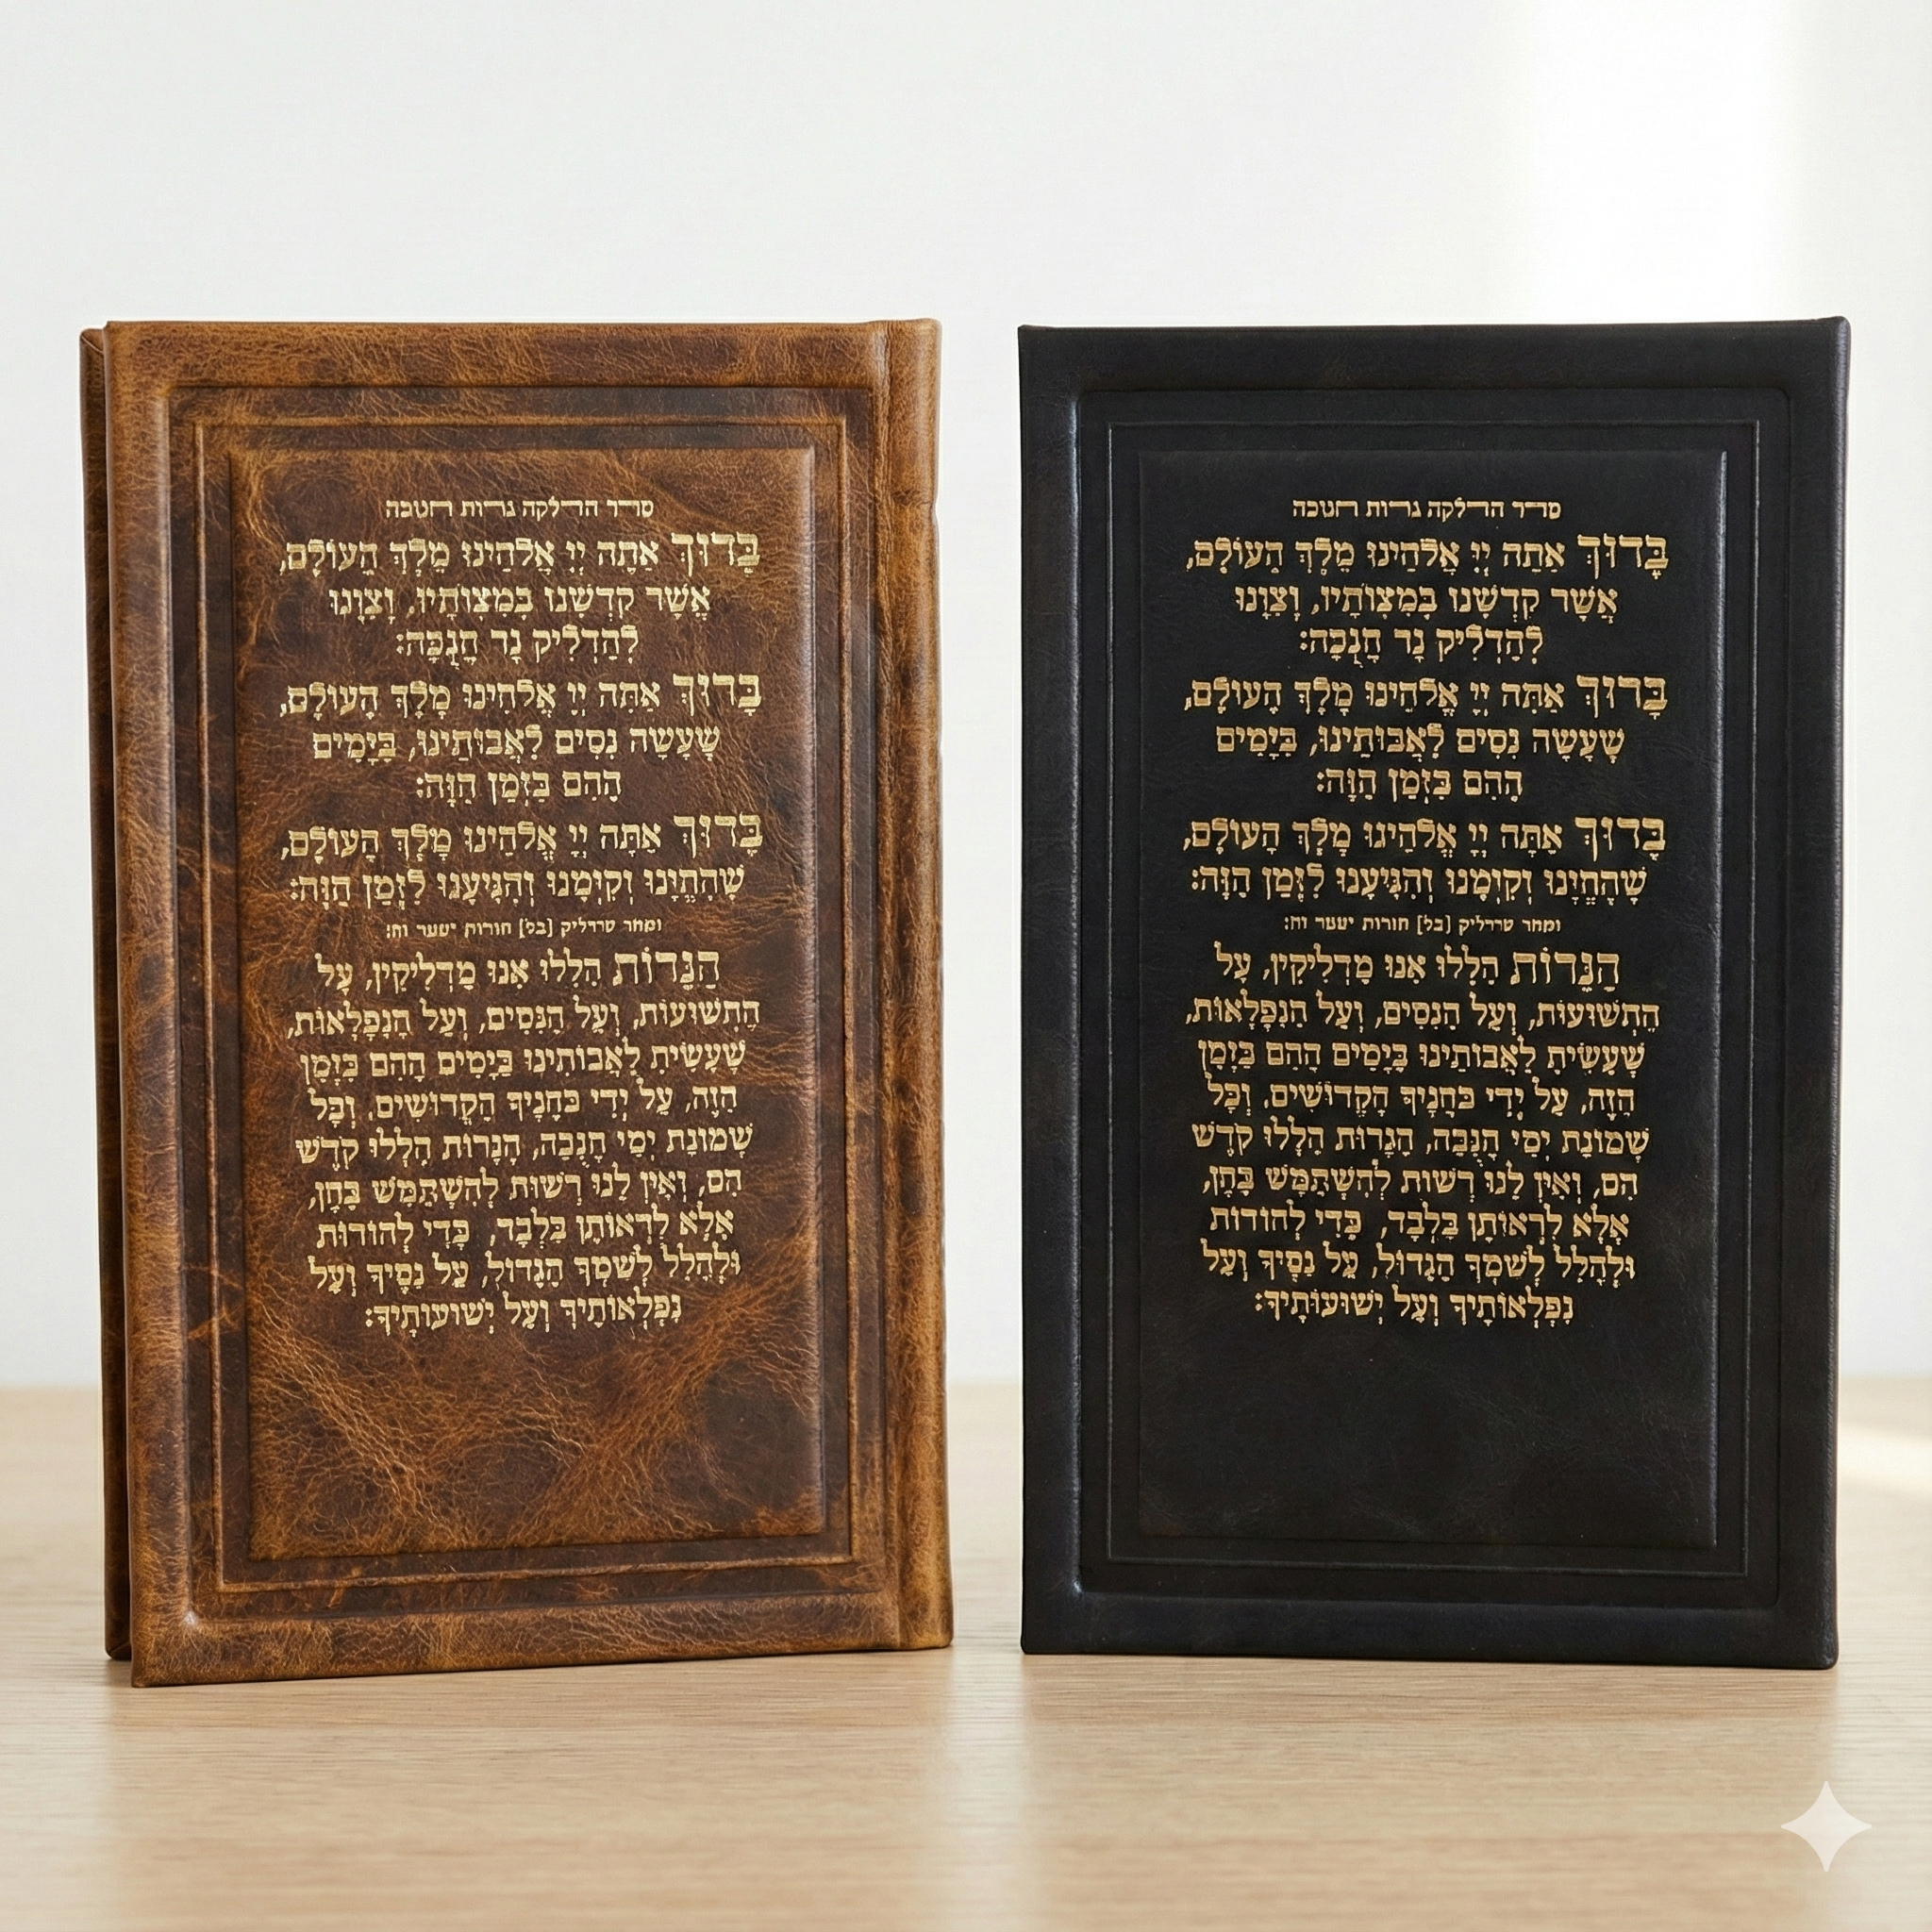 סדר הדלקה נרות חנוכה
בָּרוּךְ אַתָּה יְיָ אֱלֹהֵינוּ מֶלֶךְ הָעוֹלָם,
אֲשֶׁר קִדְּשָׁנוּ בְּמִצְוֹתָיו, וְצִוָּנוּ
לְהַדְלִיק נֵר חֲנֻכָּה:
בָּרוּךְ אַתָּה יְיָ אֱלֹהֵינוּ מֶלֶךְ הָעוֹלָם,
שֶׁעָשָׂה נִסִּים לַאֲבוֹתֵינוּ, בַּיָּמִים
הָהֵם בַּזְּמַן הַזֶּה:
בָּרוּךְ אַתָּה יְיָ אֱלֹהֵינוּ מֶלֶךְ הָעוֹלָם,
שֶׁהֶחֱיָנוּ וְקִיְּמָנוּ וְהִגִּיעָנוּ לַזְּמַן הַזֶּה:
הַנֵּרוֹת הַלָּלוּ אָנוּ מַדְלִיקִין, עַל
הַתְּשׁוּעוֹת, וְעַל הַנִּסִּים, וְעַל הַנִּפְלָאוֹת,
שֶׁעָשִׂיתָ לַאֲבוֹתֵינוּ בַּיָּמִים הָהֵם בַּזְּמַן
הַזֶּה, עַל יְדֵי הַקְּדוֹשִׁים. וְכָל
שְׁמוֹנַת יְמֵי חֲנֻכָּה, הַנֵּרוֹת הַלָּלוּ קֹדֶשׁ
הֵם, וְאֵין לָנוּ רְשׁוּת לְהִשְׁתַּמֵּשׁ בָּהֶן,
אֶלָּא לִרְאוֹתָן בִּלְבָד, כְּדֵי לְהוֹדוֹת
וּלְהַלֵּל לְשִׁמְךָ הַגָּדוֹל, עַל נִסֶּיךָ וְעַל
נִפְלְאוֹתֶיךָ וְעַל יְשׁוּעוֹתֶיךָ:
סדר הדלקה נרות חנוכה
בָּרוּךְ אַתָּה יְיָ אֱלֹהֵינוּ מֶלֶךְ הָעוֹלָם,
אֲשֶׁר קִדְּשָׁנוּ בְּמִצְוֹתָיו, וְצִוָּנוּ
לְהַדְלִיק נֵר חֲנֻכָּה:
בָּרוּךְ אַתָּה יְיָ אֱלֹהֵינוּ מֶלֶךְ הָעוֹלָם,
שֶׁעָשָׂה נִסִּים לַאֲבוֹתֵינוּ, בַּיָּמִים
הָהֵם בַּזְּמַן הַזֶּה:
בָּרוּךְ אַתָּה יְיָ אֱלֹהֵינוּ מֶלֶךְ הָעוֹלָם,
שֶׁהֶחֱיָנוּ וְקִיְּמָנוּ וְהִגִּיעָנוּ לַזְּמַן הַזֶּה:
הַנֵּרוֹת הַלָּלוּ אָנוּ מַדְלִיקִין, עַל
הַתְּשׁוּעוֹת, וְעַל הַנִּסִּים, וְעַל הַנִּפְלָאוֹת,
שֶׁעָשִׂיתָ לַאֲבוֹתֵינוּ בַּיָּמִים הָהֵם בַּזְּמַן
הַזֶּה, עַל יְדֵי הַקְּדוֹשִׁים. וְכָל
שְׁמוֹנַת יְמֵי חֲנֻכָּה, הַנֵּרוֹת הַלָּלוּ קֹדֶשׁ
הֵם, וְאֵין לָנוּ רְשׁוּת לְהִשְׁתַּמֵּשׁ בָּהֶן,
אֶלָּא לִרְאוֹתָן בִּלְבָד, כְּדֵי לְהוֹדוֹת
וּלְהַלֵּל לְשִׁמְךָ הַגָּדוֹל, עַל נִסֶּיךָ וְעַל
נִפְלְאוֹתֶיךָ וְעַל יְשׁוּעוֹתֶיךָ: